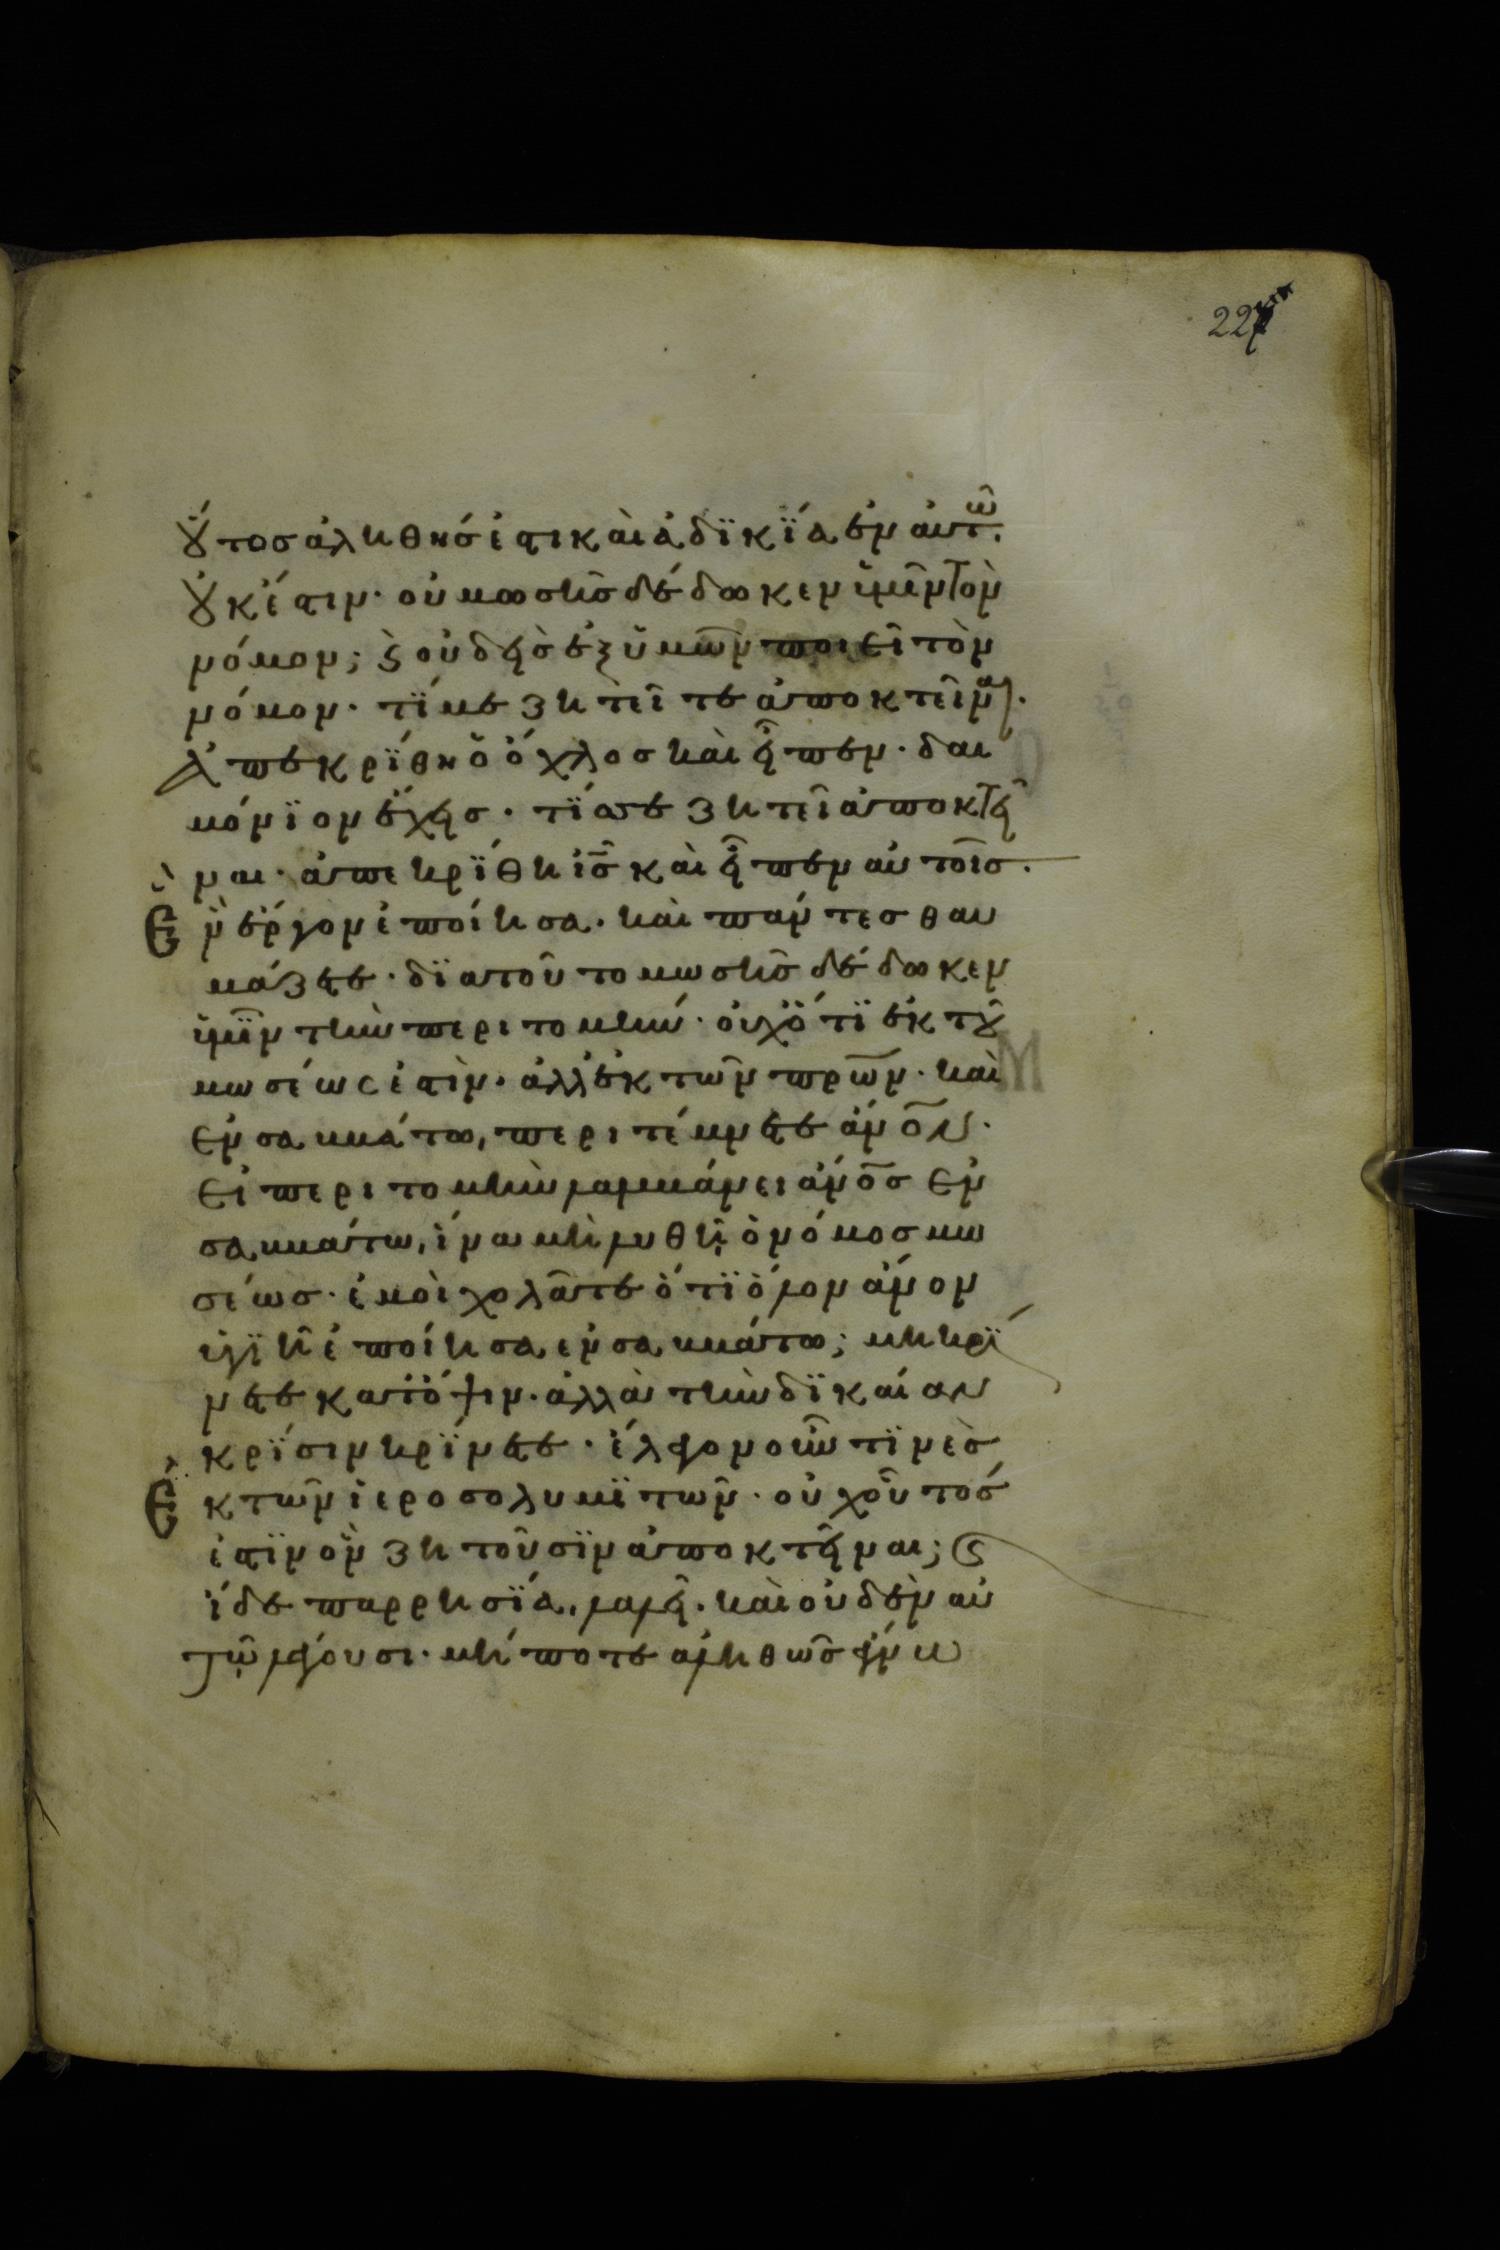 227
οὗτος ἀληθής ἐστι καὶ ἀδικία ἐν αὐτῶ.
οὐκ έστιν· οὐ μωσῆς δέδωκεν ὑμῖν τὸν
νόμον; ϛ οὐδεὶς ἐξ ὑμῶν ποιεῖ τὸν
νόμον· τί με ζητεῖτε ἀποκτεῖναι.
ἀπεκρίθη ὁ ὄχλος καὶ εἶπεν· δαι
μόνιον έχεις· τίς σε ζητεῖ ἀποκτεῖ
ναι· ἀπεκρίθη ις καὶ εἶπεν αὐτοῖς.
Ἓν ἔργον ἐποίησα· καὶ πάντες θαυ
μάζετε· διατοῦτο μωσῆς δέδωκεν
ὑμῖν τὴν περιτομήν· οὐχ ὅτι ἐκ τοῦ
μωσέως ἐστὶν· ἀλλ' ἐκ τῶν πρων· καὶ
ἐν σαμμάτω, περιτέμνετε ἀνον·
εἰ περιτομὴν λαμμάνει ἀνος ἐν
σαμμάτω, ἵνα μὴ λυθῆ ὁ νόμος μω
σέως· ἐμοὶ χολᾶτε ὅτι ὅλον άνον
ὑγιῆ ἐποίησα ἐν σαμμάτω; μη κρί
νετε κατ' ὄψιν· ἀλλὰ τὴν δικαίαν
κρίσιν κρίνετε· έλεγον οὖν τινὲς
Ἐκ τῶν ἱεροσολυμιτῶν· οὐχ οὗτός
ἐστιν ὃν ζητοῦσιν ἀποκτεῖναι; ϛ
ίδε παρρησία, λαλεῖ· καὶ οὐδὲν αὐ
τῶ λέγουσι· μήποτε αληθῶς έγνω